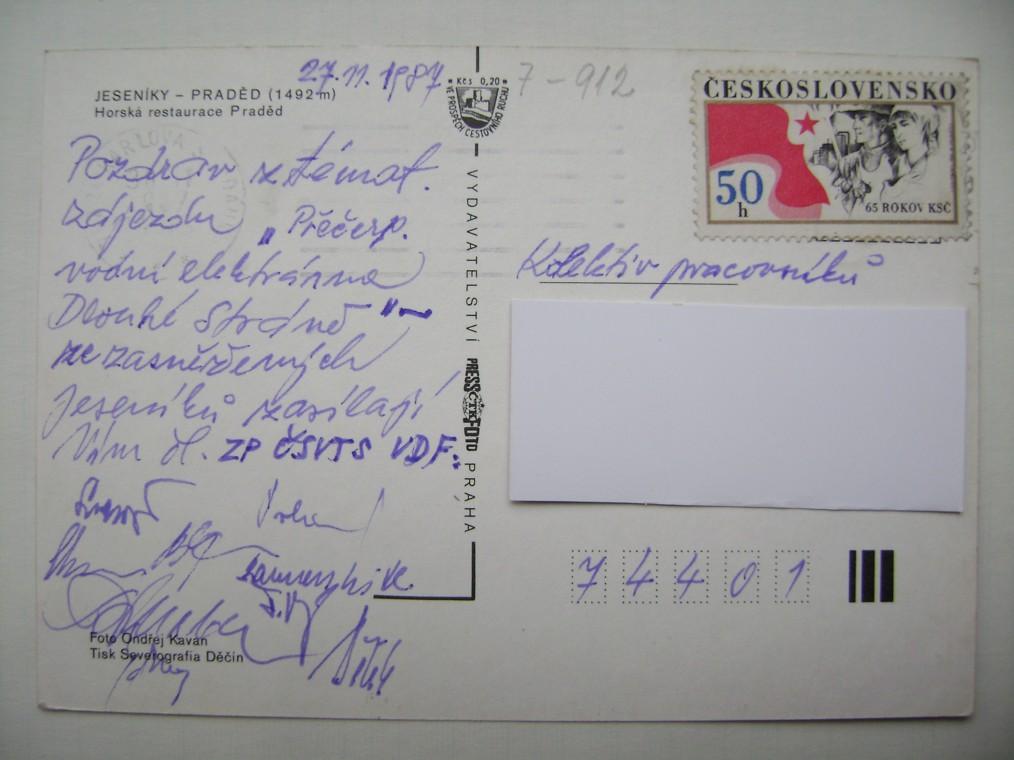 27.11.1987
7-912
JESENÍKY – PRADĚD (1492 m)
Horská restaurace Praděd
Kčs 0,20
VE PROSPĚCH CESTOVNÍHO RUCHU
ČESKOSLOVENSKO
50 h
65 ROKOV KSČ
Pozdrav z témat.
zájezdu „Přečerp.
vodní elektrárna
Dlouhé Stráně" –
ze zasněžených
Jeseníků zasílají
Vám čl. ZP ČSVTS VDF.
Kolektiv pracovníků
VYDAVATELSTVÍ PRESSFOTO PRAHA
ČTK
74401
Foto Ondřej Kavan
Tisk Severografia Děčín